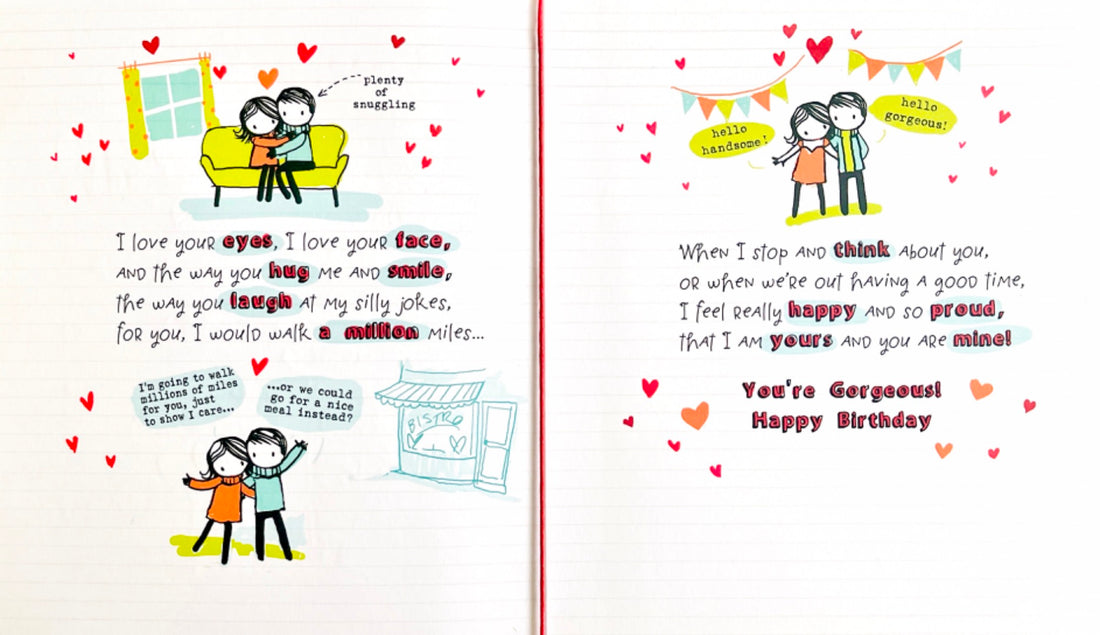 plenty
of
snuggling
I love your eyes, I love your face,
and the way you hug me and smile,
the way you laugh at my silly jokes,
for you, I would walk a million miles...
I'm going to walk
millions of miles
for you, just
to show I care...
...or we could
go for a nice
meal instead?
BISTRO
hello
handsome!
hello
gorgeous!
When I stop and think about you,
or when we're out having a good time,
I feel really happy and so proud,
that I am yours and you are mine!
You're Gorgeous!
Happy Birthday